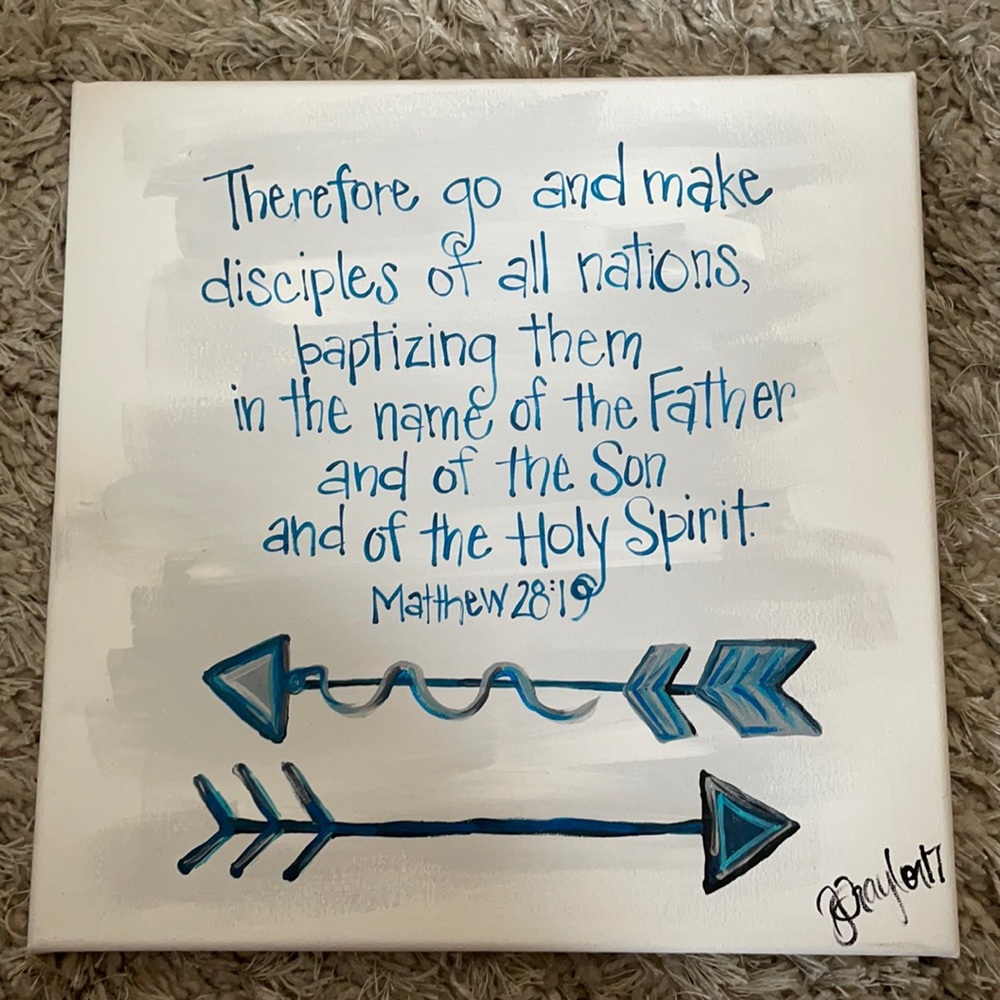 Therefore go and make
disciples of all nations,
baptizing them
in the name of the Father
and of the Son
and of the Holy Spirit.
Matthew 28:19